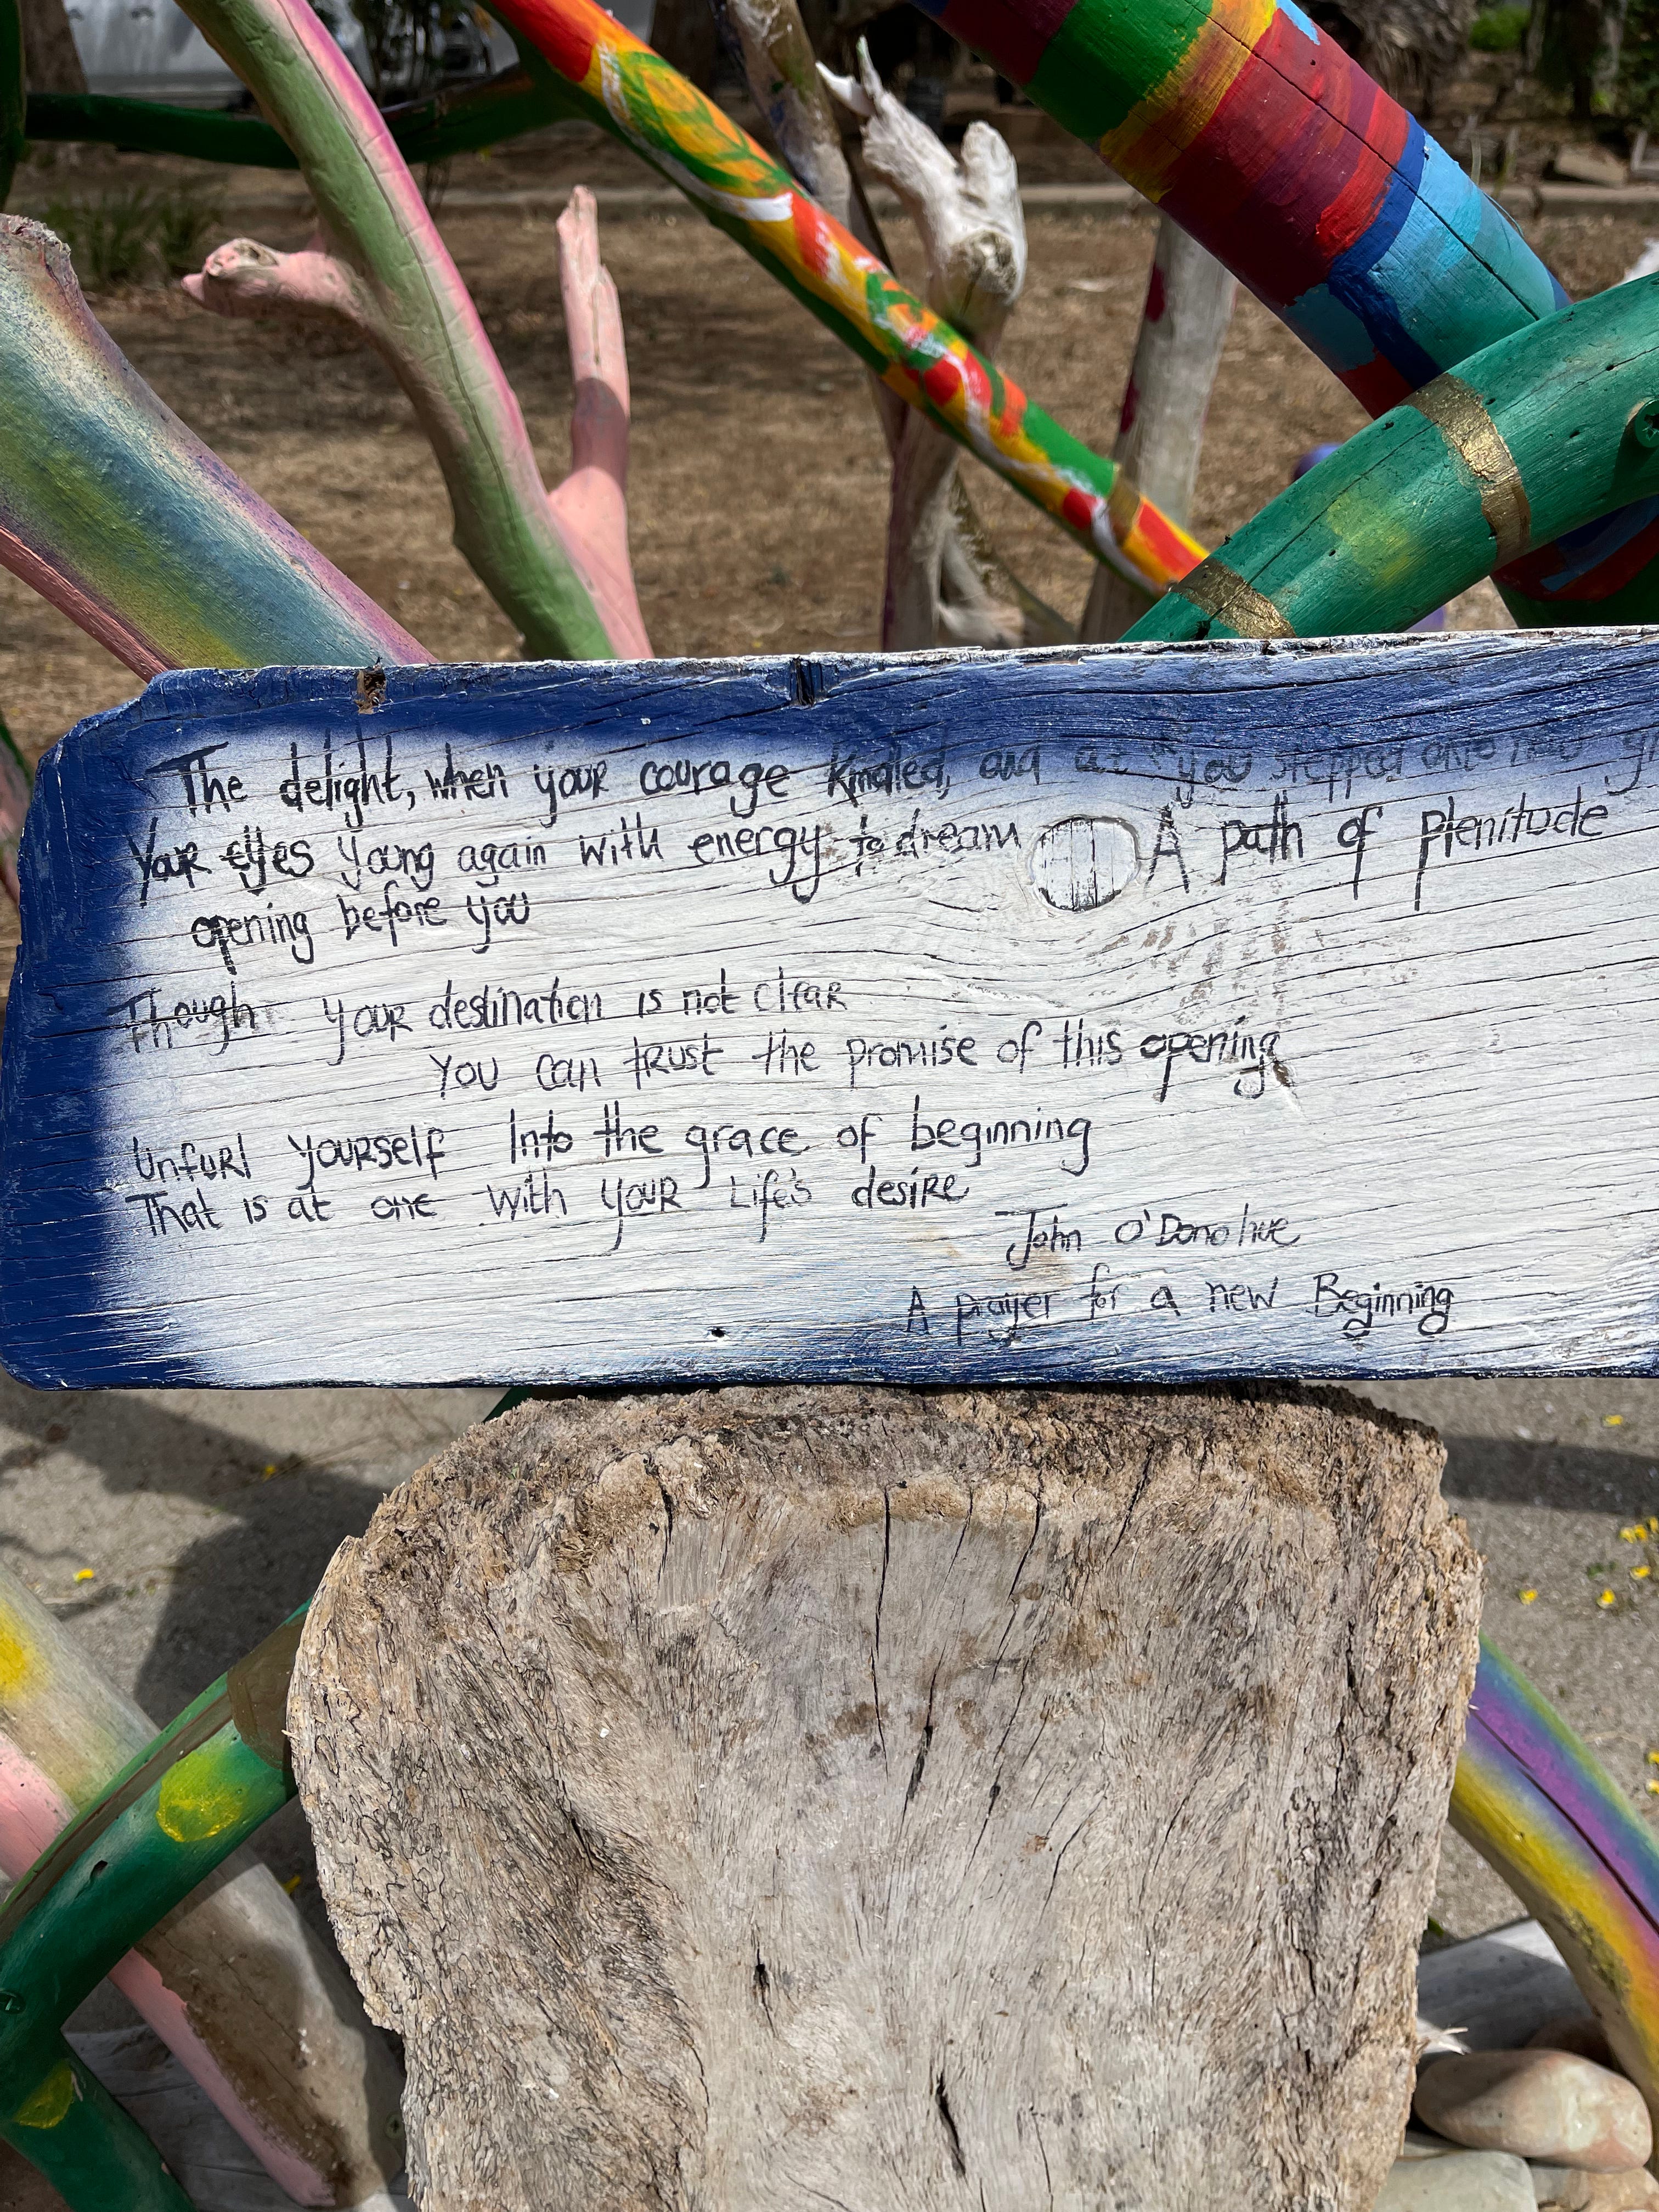 The delight, when your courage kindled, and out you stepped onto new
Your eyes young again with energy to dream A path of plenitude
opening before you
Though your destination is not clear
You can trust the promise of this opening
Unfurl yourself Into the grace of beginning
That is at one with your Life's desire
John O'Donohue
A prayer for a new Beginning